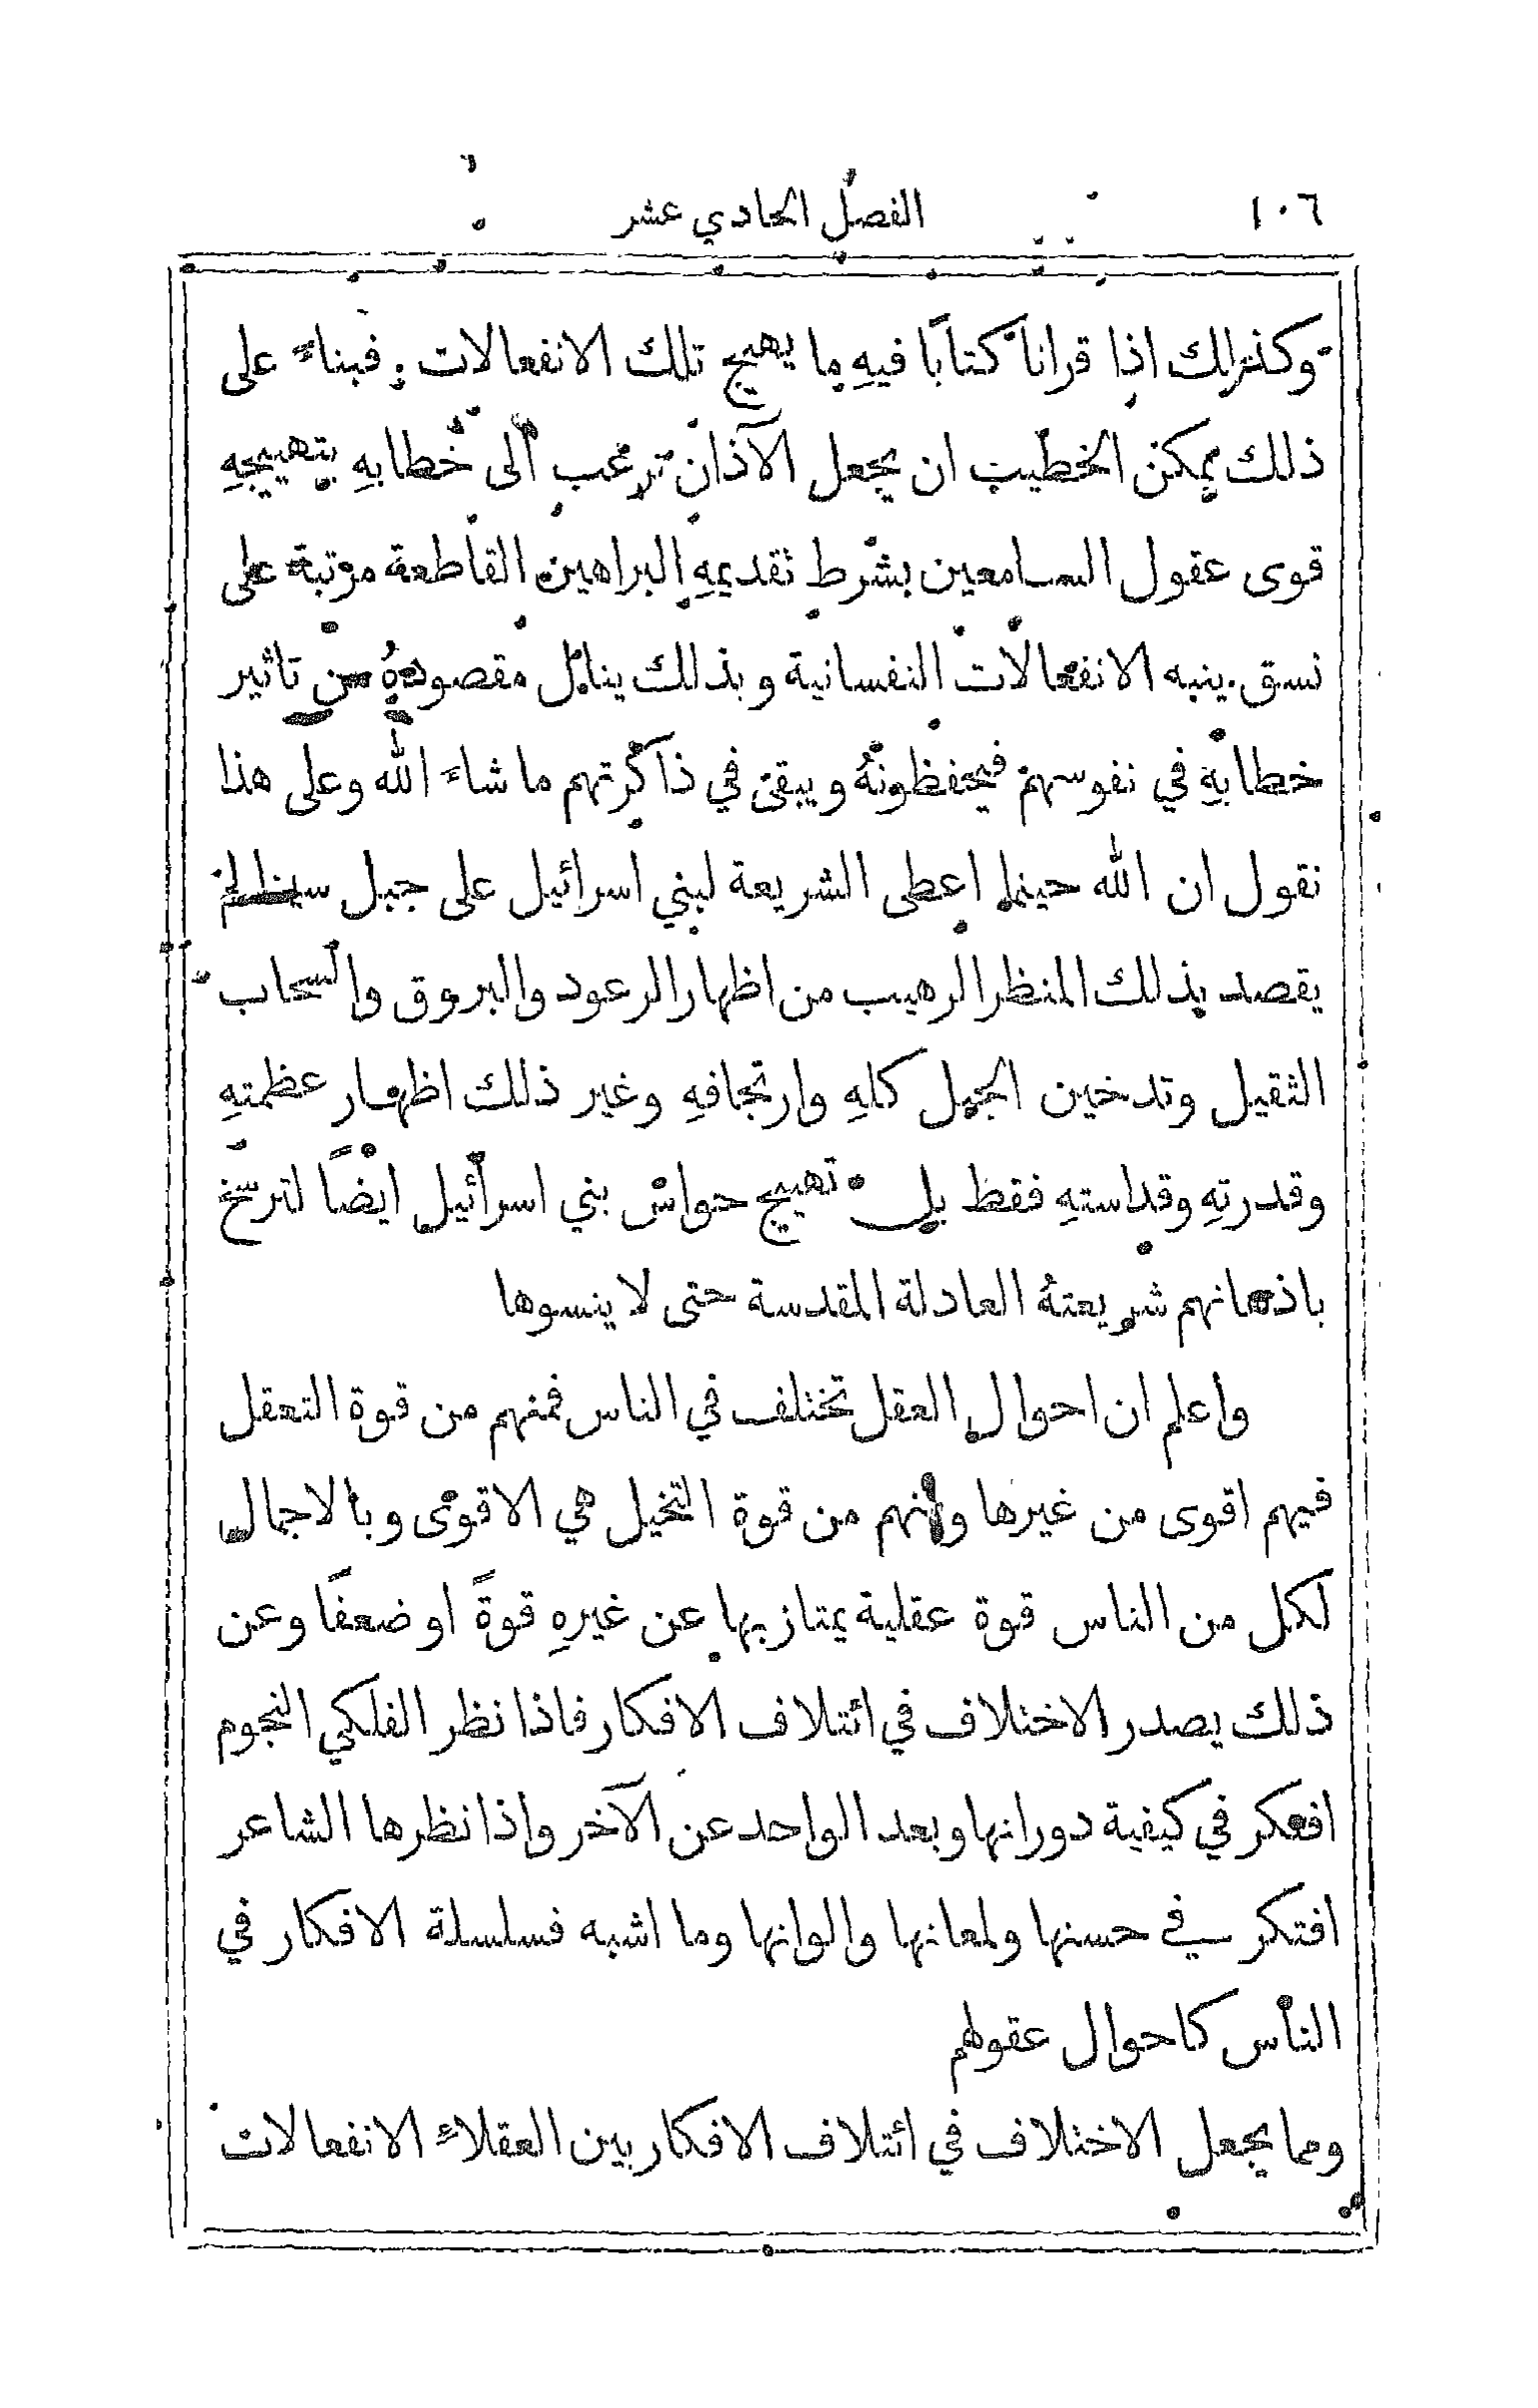 ١٠٦ الفصل الحادي عشر
وكذلك اذا قرانا كتابًا فيهِ ما يهيج تلك الانفعالات . فبناءً على
ذلك يمكن الخطيب ان يجعل الآذان ترغب الى خطابهِ بتهييجهِ
قوى عقول السامعين بشرط تقديمهِ البراهين القاطعة مرتبة على
نسق ينبه الانفعالات النفسانية وبذلك ينال مقصودهُ من تاثير
خطابهِ في نفوسهم فيحفظونهُ ويبقى في ذاكرتهم ما شاءَ الله وعلى هذا
نقول ان الله حينما اعطى الشريعة لبني اسرائيل على جبل سينا لم
يقصد بذلك المنظر الرهيب من اظهار الرعود والبروق والسحاب
الثقيل وتدخين الجبل كلهِ وارتجافهِ وغير ذلك اظهار عظمتهِ
وقدرتهِ وقداستهِ فقط بل تهييج حواس بني اسرائيل ايضًا لترسخ
باذهانهم شريعتهُ العادلة المقدسة حتى لا ينسوها
واعلم ان احوال العقل تختلف في الناس فمنهم من قوة التعقل
فيهم اقوى من غيرها ومنهم من قوة التخيل هي الاقوى وبالاجمال
لكل من الناس قوة عقلية يمتاز بها عن غيرهِ قوةً او ضعفًا وعن
ذلك يصدر الاختلاف في ائتلاف الافكار فاذا نظر الفلكي النجوم
افتكر في كيفية دورانها وبعد الواحد عن الآخر واذا نظرها الشاعر
افتكر في حسنها ولمعانها والوانها وما اشبه فسلسلة الافكار في
الناس كاحوال عقولهم
ومما يجعل الاختلاف في ائتلاف الافكار بين العقلاءِ الانفعالات